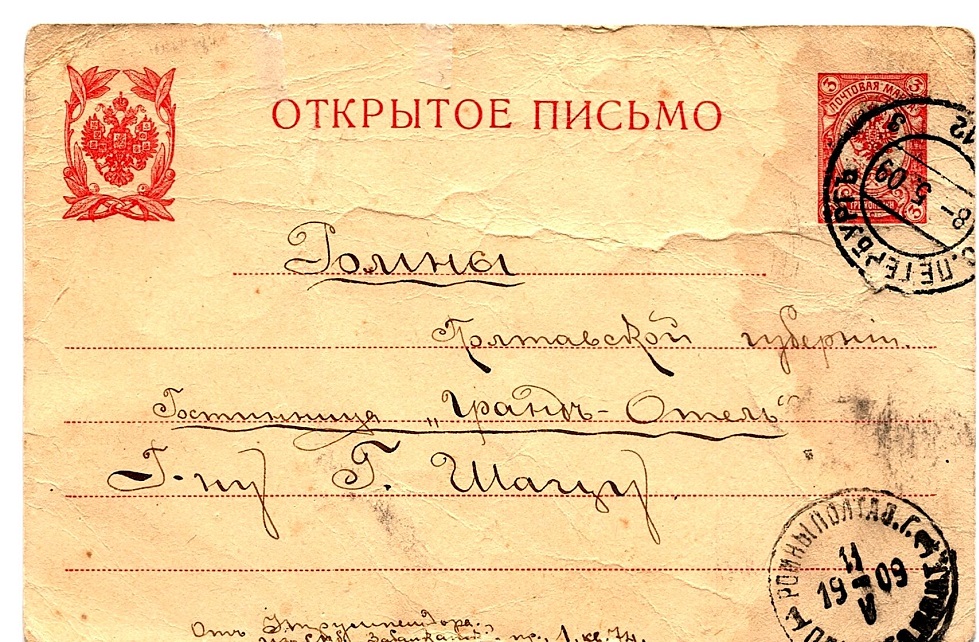 ОТКРЫТОЕ ПИСЬМО
ПОЧТОВАЯ МАРКА
3
3
С.ПЕТЕРБУРГЪ
8-5.09
12
Ромны
Полтавской губерніи.
Гостинница „Грандъ-Отель“
Г-ну Г. Шацу.
РОМНЫ ПОЛТАВ. Г.
11
19 09
V
Отъ
кв. 74.